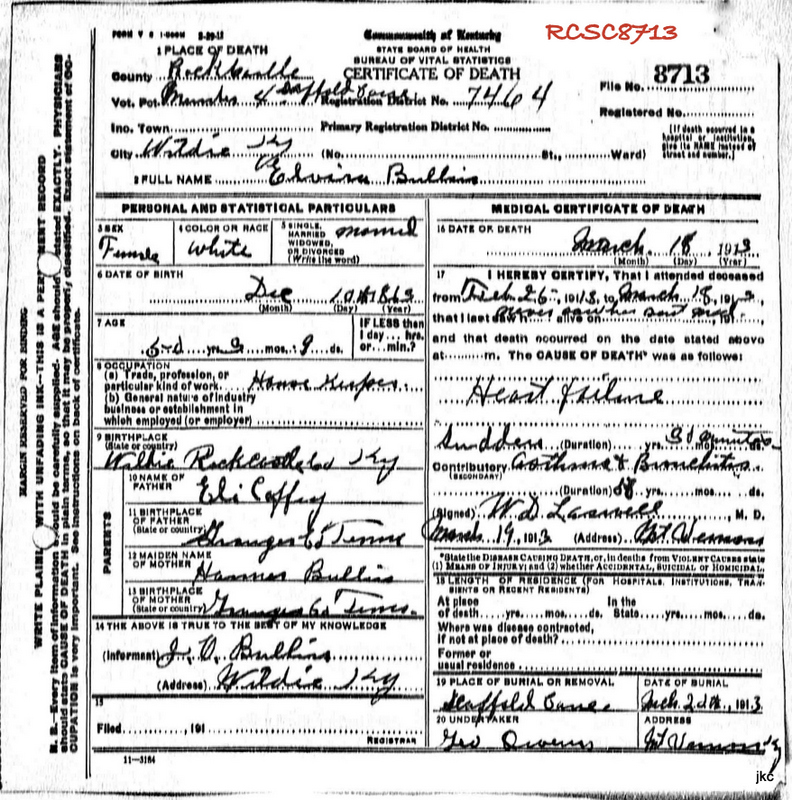 FORM V S 1-500M 5-29-12
Commonwealth of Kentucky
RCSC8713
STATE BOARD OF HEALTH
BUREAU OF VITAL STATISTICS
CERTIFICATE OF DEATH
1 PLACE OF DEATH
County Rockcastle
File No. 8713
Vot. Pct. 4 Scaffold Cane Registration District No. 7464
Registered No.
Inc. Town Primary Registration District No.
City Wildie Ky (No. St., Ward)
(If death occurred in a hospital or institution, give its NAME instead of street and number.)
2 FULL NAME Elvira Bullin
PERSONAL AND STATISTICAL PARTICULARS
3 SEX Female
4 COLOR OR RACE White
5 SINGLE, MARRIED, WIDOWED, OR DIVORCED (Write the word) Married
6 DATE OF BIRTH
Dec 10 186
(Month) (Day) (Year)
7 AGE
yrs. 3 mos. 9 ds.
IF LESS than 1 day... hrs. or... min.?
8 OCCUPATION
(a) Trade, profession, or particular kind of work House Keeper
(b) General nature of industry business or establishment in which employed (or employer)
9 BIRTHPLACE
(State or country)
Wildie Rockcastle Co Ky
PARENTS
10 NAME OF FATHER Eli Coffey
11 BIRTHPLACE OF FATHER (State or country) Granger Co Tenn
12 MAIDEN NAME OF MOTHER Bullin
13 BIRTHPLACE OF MOTHER (State or country) Granger Co Tenn.
14 THE ABOVE IS TRUE TO THE BEST OF MY KNOWLEDGE
(Informant) Bullin
(Address) Wildie Ky
15
Filed, 191
REGISTRAR
11-3184
MEDICAL CERTIFICATE OF DEATH
16 DATE OF DEATH
March 18 1913
(Month) (Day) (Year)
17 I HEREBY CERTIFY, That I attended deceased
from Feb 26, 1913, to March 18, 1913,
that I last saw h alive on, 191,
and that death occurred on the date stated above
at m. The CAUSE OF DEATH* was as follows:
Heart failure
Sudden (Duration) yrs. mos. ds.
Contributory Asthma & Bronchitis
(SECONDARY)
(Duration) yrs. mos. ds.
(Signed) W. D. Laswell, M. D.
March 19, 1913 (Address) Mt Vernon
*State the DISEASE CAUSING DEATH, or, in deaths from VIOLENT CAUSES state
(1) MEANS OF INJURY; and (2) whether ACCIDENTAL, SUICIDAL OR HOMICIDAL.
18 LENGTH OF RESIDENCE (FOR HOSPITALS, INSTITUTIONS, TRANSIENTS OR RECENT RESIDENTS)
At place of death yrs. mos. ds. In the State yrs. mos. ds.
Where was disease contracted, if not at place of death?
Former or usual residence
19 PLACE OF BURIAL OR REMOVAL Scaffold Cane
DATE OF BURIAL Mch. 20th, 1913
20 UNDERTAKER Geo Owens
ADDRESS Mt Vernon Ky
MARGIN RESERVED FOR BINDING
WRITE PLAINLY WITH UNFADING INK—THIS IS A PERMANENT RECORD
N. B.—Every item of information should be carefully supplied. AGE should be stated EXACTLY. PHYSICIANS
should state CAUSE OF DEATH in plain terms, so that it may be properly classified. Exact statement of OC-
CUPATION is very important. See instructions on back of certificate.
jkc